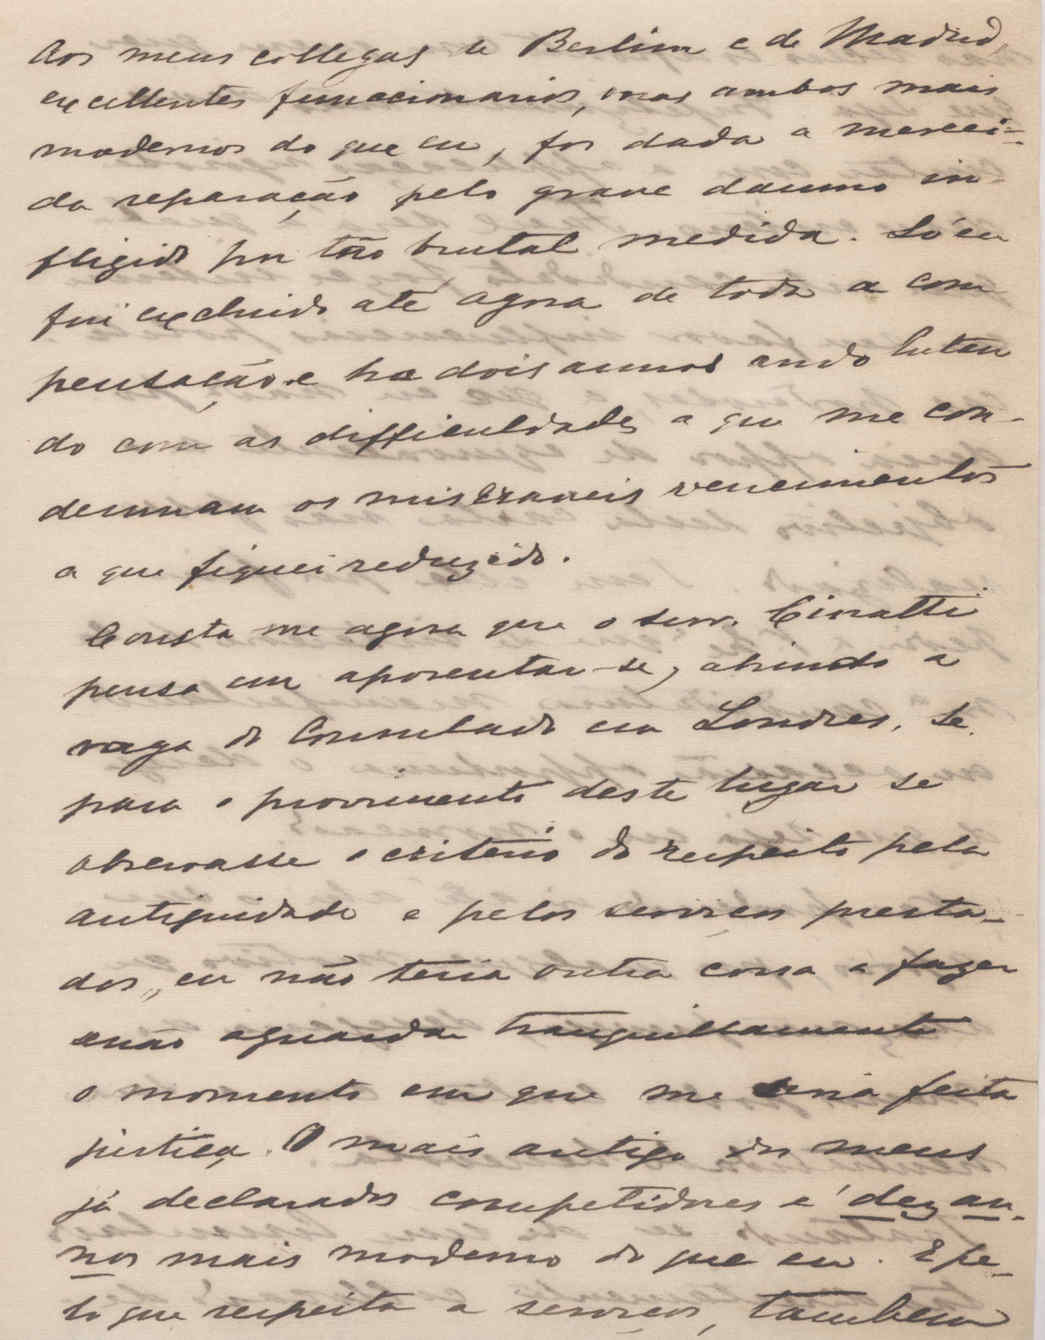 Aos meus collegas de Berlim e de Madrid,
excellentes funccionarios, mas ambos mais
modernos do que eu, foi dada a mereci-
da reparação pelo grave damno in-
fligido por tão brutal medida. Só eu
fui excluido até agora de toda a com
pensação e ha dois annos ando lutan
do com as difficuldades a que me con-
demnam os miseraveis vencimentos
a que fiquei reduzido.
Consta me agora que o snr. Cinatti
pensa em aposentar-se, abrindo a
vaga do Consulado em Londres. Se
para o provimento deste lugar se
observasse o criterio do respeito pela
antiguidade e pelos serviços presta-
dos, eu não teria outra cousa a fazer
senão aguardar tranquillamente
o momento em que me seria feita
justiça. O mais antigo dos meus
já declarados competidores é dez an-
nos mais moderno do que eu. E pe-
lo que respeita a serviços, tambem